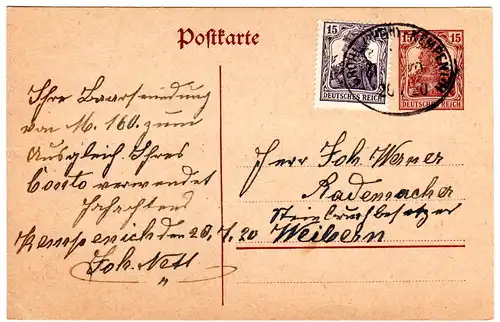 Postkarte
15 15
DEUTSCHES REICH DEUTSCHES REICH
Ihre Baarsendung
von M. 160. zum
Ausgleich Ihres
Conto verwendet
Achtend
Kempenich den 20.7.20
Joh. Nett
Herr Joh. Werner
Rademacher
Steinbruchbesitzer
Weibern